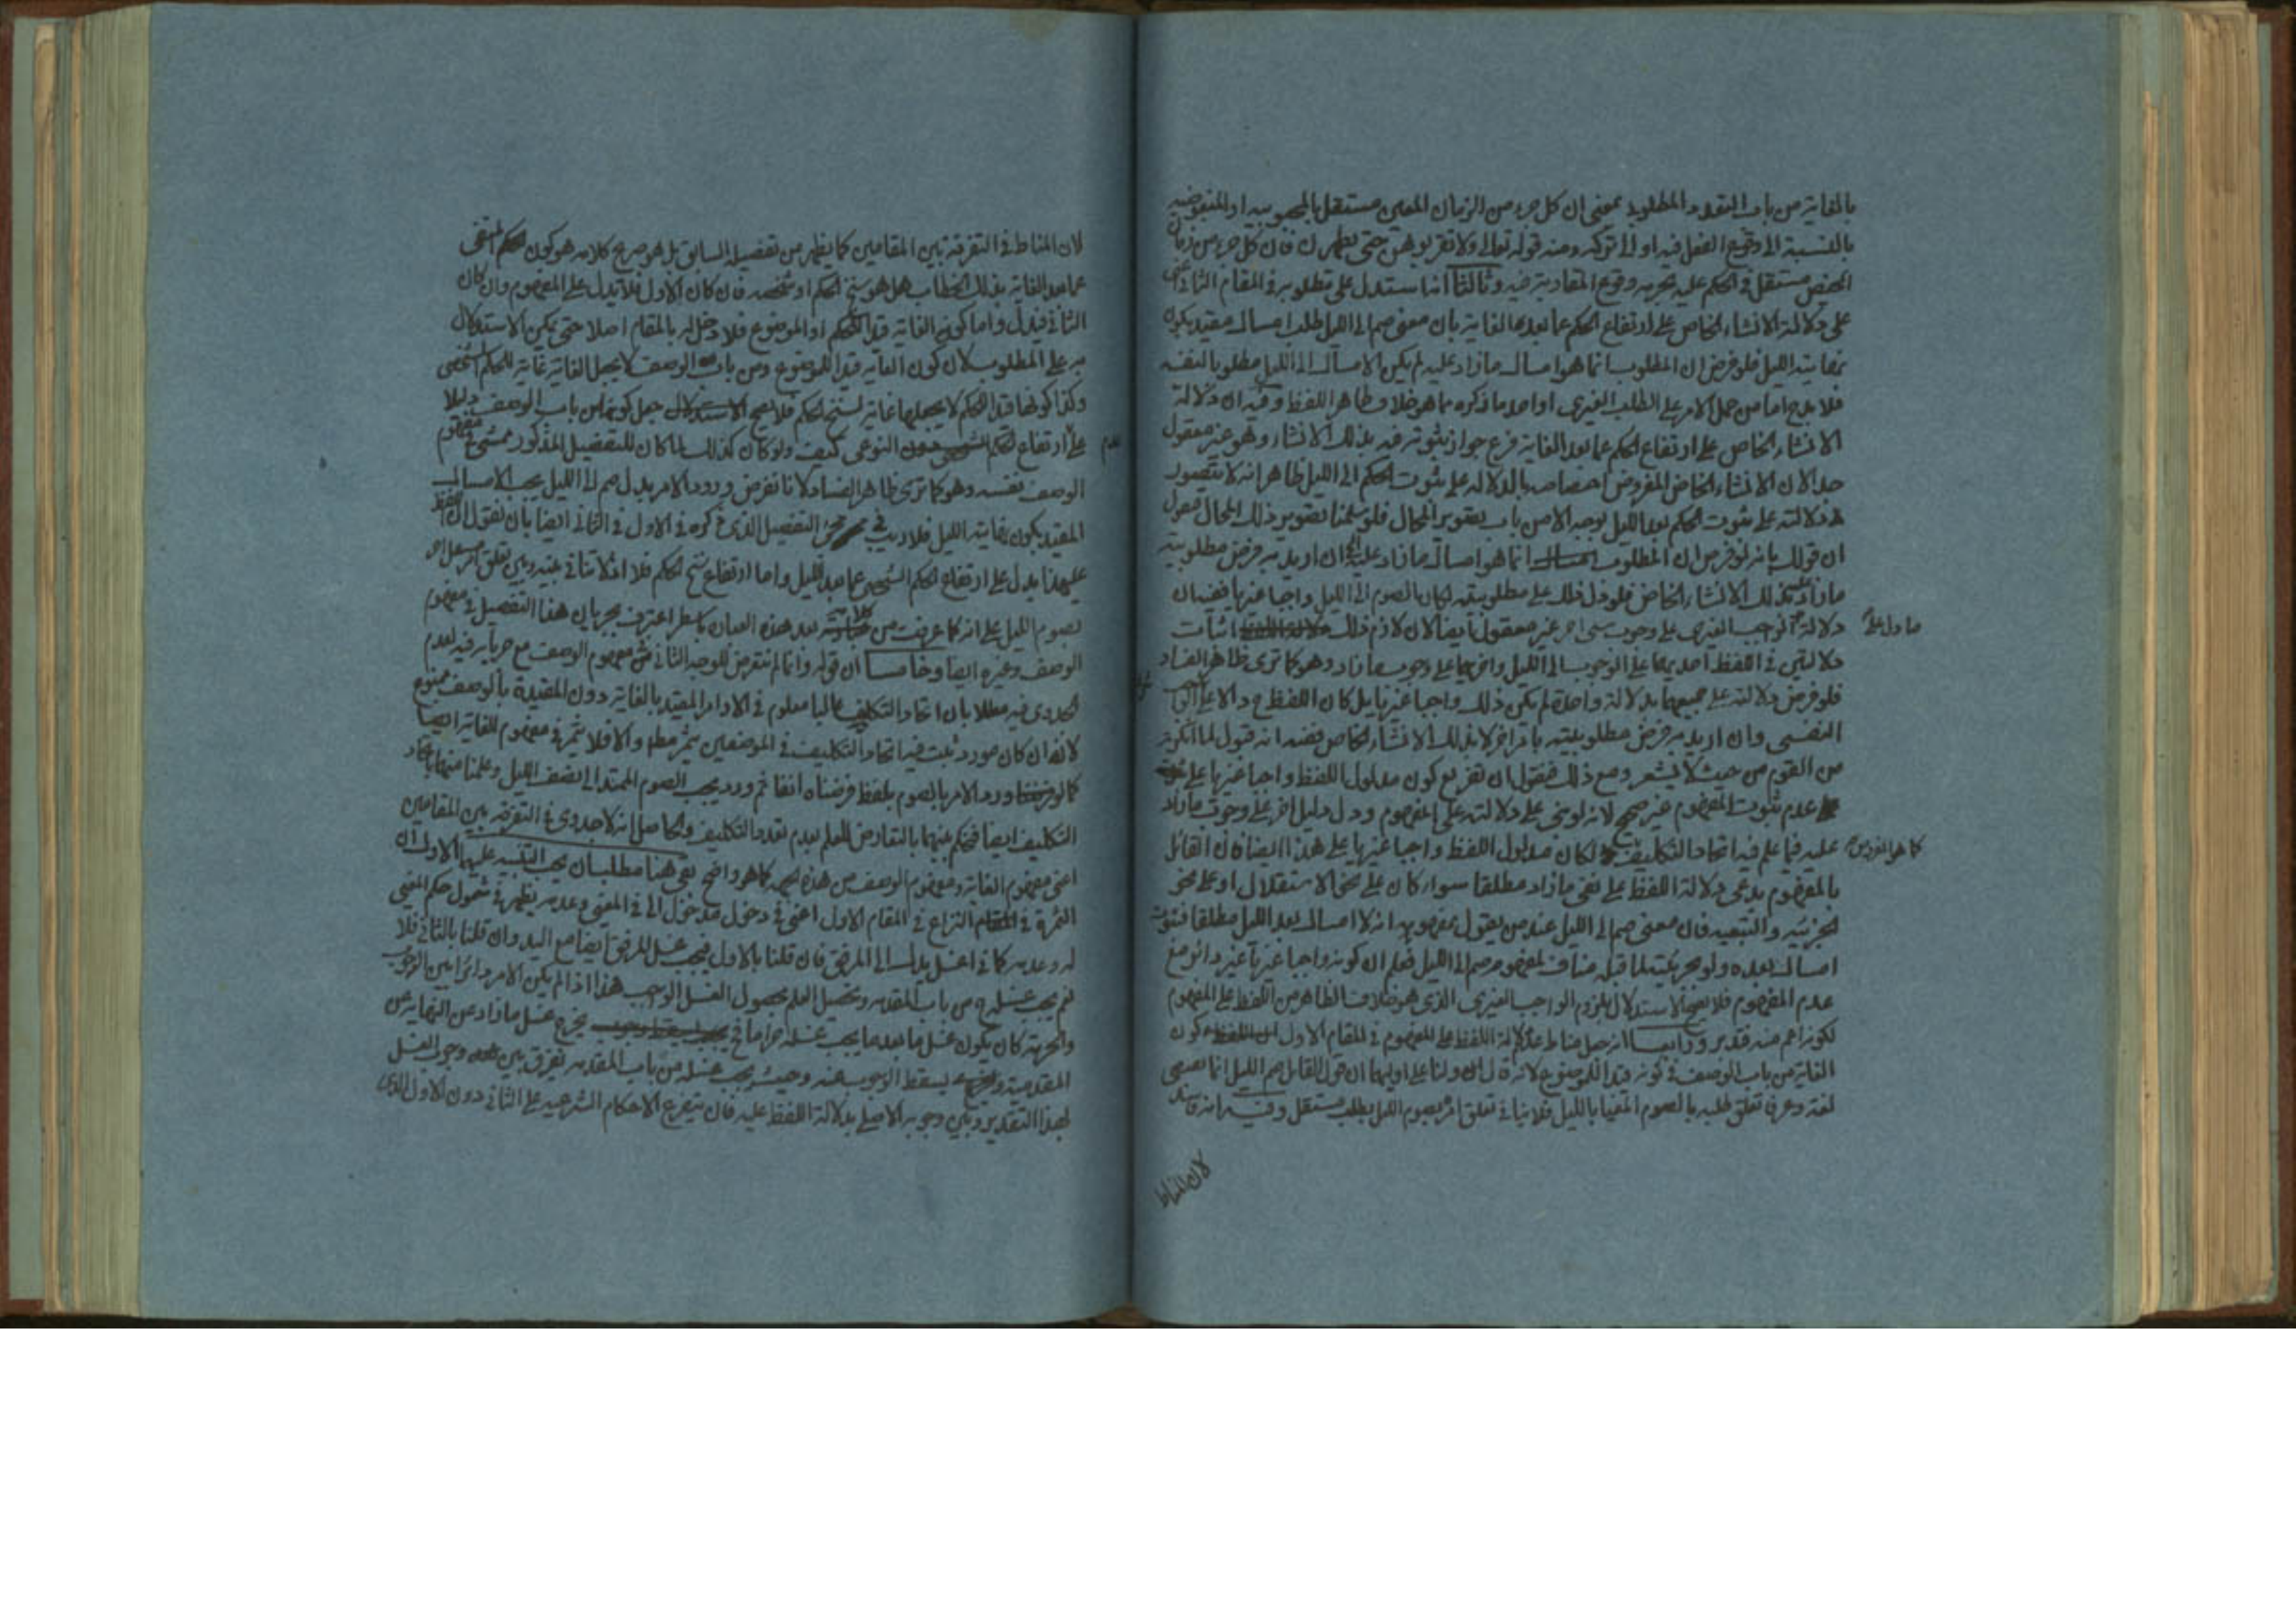 بالغاية من باب التعدد المطلوب بمعنى ان كل جزء من الزمان المعين مستقل بالمحبوبية او المبغوضية
بالنسبة الى وقوع الفعل فيه او الى تركه ومنه قوله تعالى ولا تقربوهن حتى يطهرن فان كل جزء من زمان
الحيض مستقل في الحكم عليه بحرمة وقوع المقاربة فيه وثالثا انا نستدل على مطلوبه في المقام الثاني اعنى
على دلالة الانشاء الخاص على ارتفاع الحكم عما بعد الغاية بان معنى صم الى الليل طلب امساك مقيد بكون
نهايته الليل فلو فرض ان المطلوب انما هو امساك ما زاد عليه لم يكن الامساك الى الليل مطلوبا لنفسه
فلا بد ح اما من حمل الامر على الطلب الغيرى او احد ما ذكره مما هو خلاف ظاهر اللفظ وفيه ان دلالة
الانشاء الخاص على ارتفاع الحكم عما بعد الغاية فرع جواز ثبوته فيه بذلك الانشاء وهو غير معقول
جدا لان الانشاء الخاص المفروض اختصاصه بالدلالة على ثبوت الحكم الى الليل ظاهر انه لا يتصور
دلالته على ثبوت الحكم بعد الليل بوجه الا من باب تصوير المحال فلو سلمنا تصوير ذلك المحال فنقول
ان قولك بانه لو فرض ان المطلوب انما هو امساك ما زاد عليه ان اريد به فرض مطلوبية
ما زاد بذلك الانشاء الخاص فلو دل ذلك على مطلوبيته لكان الصوم الى الليل واجبا غيريا ففيه ان
دلالة الوجوب الغيرى على وجوب شىء اخر غير معقول ايضا لان لازم ذلك اثبات
ما دل على
دلالتين في اللفظ احديهما على الوجوب الى الليل واخريهما على وجوب ما زاد وهو كما ترى ظاهر الفساد
فلو فرض دلالته على جميعها بدلالة واحدة لم يكن ذلك واجبا غيريا بل كان اللفظ ح دالا على الواجب
النفسى وان اريد به فرض مطلوبيته بامر اخر لا بذلك الانشاء الخاص ففيه انه قبول لما انكره
من القوم من حيث لا يشعر ومع ذلك فنقول ان تفريع كون مدلول اللفظ واجبا غيريا على
عدم ثبوت المفهوم غير صحيح لانه لو بنى على دلالته على المفهوم ودل دليل اخر على وجوب ما زاد
عليه فيما علم فيه اتحاد التكليف لكان مدلول اللفظ واجبا غيريا على هذا ايضا فان القائل
كما هو المفروض
بالمفهوم يدعى دلالة اللفظ على نفى ما زاد مطلقا سواء كان على نحو الاستقلال او على نحو
الجزئية والتبعية فان معنى صم الى الليل عند من يقول بمفهومه انه لا امساك بعد الليل مطلقا فثبوت
امساك بعده ولو بجزئيته لما قبله مناف لمفهوم صم الى الليل فعلم ان كونه واجبا غيريا غير دائر مع
عدم المفهوم فلا يصح الاستدلال بلزوم الواجب الغيرى الذى هو خلاف الظاهر من اللفظ على المفهوم
لكونه اعم منه فتدبر ورابعا انه جعل مناط عدم دلالة اللفظ على المفهوم في المقام الاول كون
الغاية من باب الوصف في كونه قيدا للموضوع لانه قال ان ولنا على اولهما ان قول القائل صم الى الليل انما يقتضى
لغة وعرفا تعلق طلبه بالصوم المغيا بالليل فلا ينافى تعلق امره بصوم الليل بطلب مستقل وفيه انه فاسد
لان المناط
لان المناط في التفرقة بين المقامين كما يظهر من تفصيله السابق بل هو صريح كلامه هو كون الحكم المنتفى
عما بعد الغاية بذلك الخطاب هل هو سنخ الحكم او شخصه فان كان الاول فلا تدل على المفهوم وان كان
الثانى فيدل واما كون الغاية قيد الحكم او الموضوع فلا دخل له بالمقام اصلا حتى يمكن الاستدلال
به على المطلوب لان كون الغاية قيدا للموضوع ومن باب الوصف لا يجعل الغاية غاية للحكم الشخصى
وكذا كونها قيدا للحكم لا يجعلها غاية لسنخ الحكم فلا يصح جعل كونها من باب الوصف دليلا
على ارتفاع الحكم النوعى كيف ولو كان كذلك لما كان للتفصيل المذكور ممشى في مفهوم
عدم
الوصف نفسه وهو كما ترى ظاهر الفساد لانا نفرض ورود الامر بدل صم الى الليل يجب الامساك
المقيد بكون نهايته الليل فلا ريب في التفصيل الذى ذكره في الاول في الثانى ايضا بان نقول ان اللفظ
على هذا يدل على ارتفاع الحكم الشخصى عما بعد الليل واما ارتفاع سنخ الحكم فلا اذ لا تنافى بينه وبين تعلق امر مستقل اخر
بصوم الليل على انه كما عرفت من كلامه بعد هذه العبارة كما سطر اعترف بجريان هذا التفصيل في مفهوم
الوصف وغيره ايضا وخامسا ان قوله وانما لم نتعرض للوجه الثانى في مفهوم الوصف مع جريانه فيه لعدم
الجدوى فيه معللا بان اتحاد التكليف غالبا معلوم في الاوامر المقيدة بالغاية دون المقيدة بالوصف ممنوع
لانه ان كان مورد ثبت فيه اتحاد التكليف في الموضعين يثمر مطلقا والا فلا يثمر في مفهوم الغاية ايضا
كما لو ورد الامر بالصوم بلفظ فرضناه انفا ثم ورد يجب الصوم الممتد الى نصف الليل وعلمنا منهما باتحاد
التكليف ايضا فنحكم بينهما بالتعارض للعلم بعدم تعدد التكليف والحاصل انه لا جدوى في التفرقة بين المقامين
اعنى مفهوم الغاية ومفهوم الوصف من هذه الجهة كما هو واضح بقى هنا مطلبان يجب التنبيه عليهما الاول ان
الثمرة في النزاع في المقام الاول اعنى في دخول مدخول الى في المغيى وعدمه يظهر في شمول حكم المغيى
له وعدمه كما في اغسل يدك الى المرفق فان قلنا بالاول فيجب غسل المرفق ايضا مع اليد وان قلنا بالثانى فلا
نعم يجب غسله من باب المقدمة وتحصيل العلم بحصول الغسل الواجب هذا اذا لم يكن الامر دائرا بين الوجوب
والحرمة كان يكون غسل ما بعد ما يجب غسله حراما فح يخرج غسل ما زاد عن النهاية عن
المقدمية فيسقط الوجوب عنه وحيث يجب غسله من باب المقدمة نفرق بين وجوب الغسل
لهذا التقدير وبين وجوبه الاصلى بدلالة اللفظ عليه فان يتفرع الاحكام الشرعية على الثانى دون الاول الذى